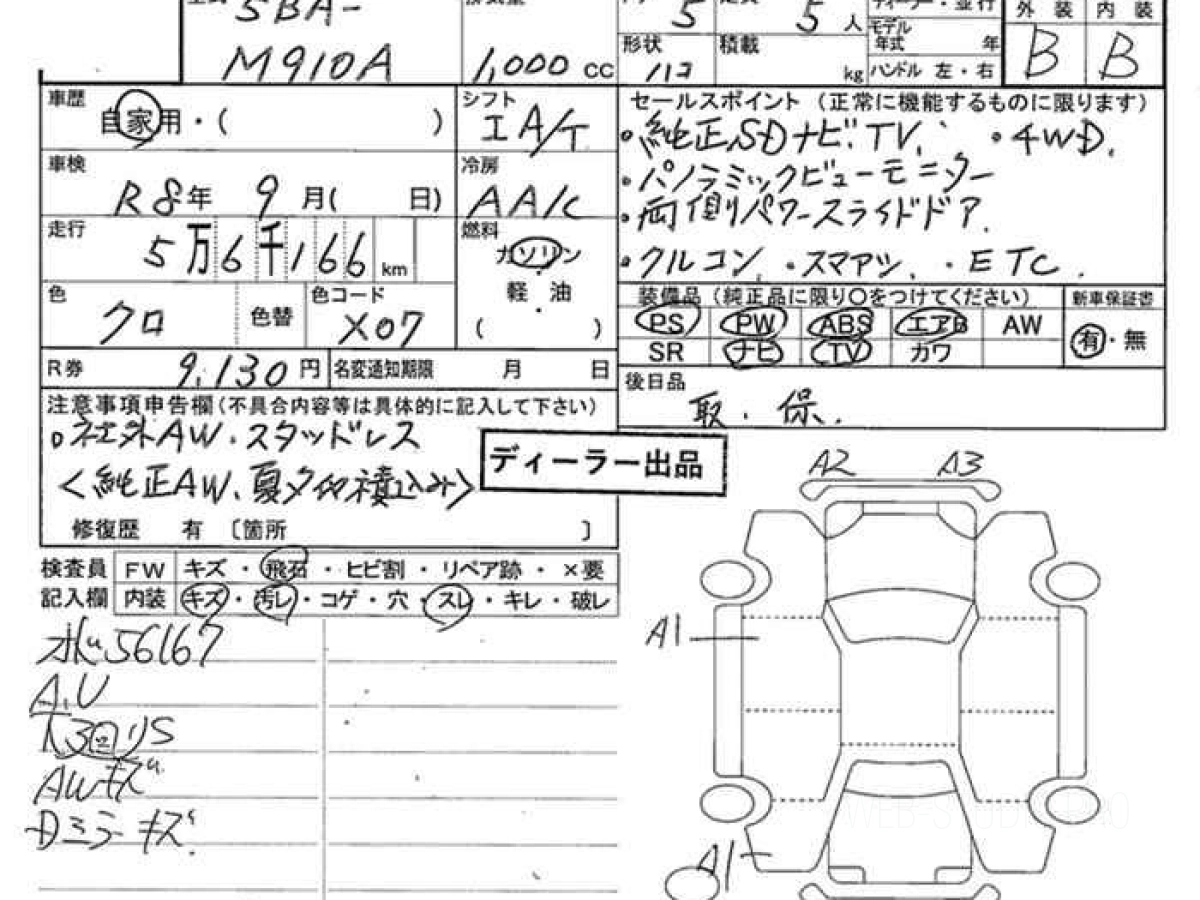 5BA-
M910A
1,000 cc
5
5 人
形状
積載
kg
モデル
年式
年
ハンドル 左・右
外装 内装
B B
車歴
自家用・( )
シフト
IA/T
車検
R8年 9月( 日)
冷房
AA/C
走行
5万6千166 km
燃料
ガソリン
・
軽油
・
( )
色
クロ
色替
色コード
X07
R券
9,130円
名変通知期限 月 日
セールスポイント(正常に機能するものに限ります)
・純正SDナビ.TV. ・4WD.
・パノラミックビューモニター
・両側パワースライドドア.
・クルコン. ・スマアシ. ・ETC.
装備品(純正品に限り○をつけてください)
新車保証書
PS PW ABS エアB AW
SR ナビ TV カワ
有・無
後日品
取.保.
注意事項申告欄(不具合内容等は具体的に記入して下さい)
社外AW.スタッドレス
<純正AW、夏タイヤ積込み>
ディーラー出品
修復歴 有 〔箇所 〕
検査員 FW キズ・飛石・ヒビ割・リペア跡・×要
記入欄 内装 キズ・汚レ・コゲ・穴・スレ・キレ・破レ
56167
A,U
AWキズ
Dミラーキズ
A2 A3
A1
A1